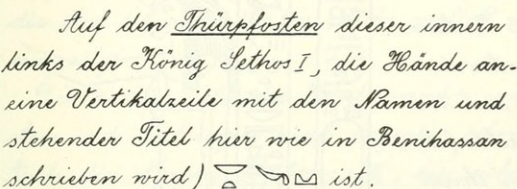 Auf den Thürpfosten dieser innern
links der König Sethos I, die Hände an-
eine Vertikalzeile mit den Namen und
stehender Titel hier wie in Benihassan
schrieben wird) ist.